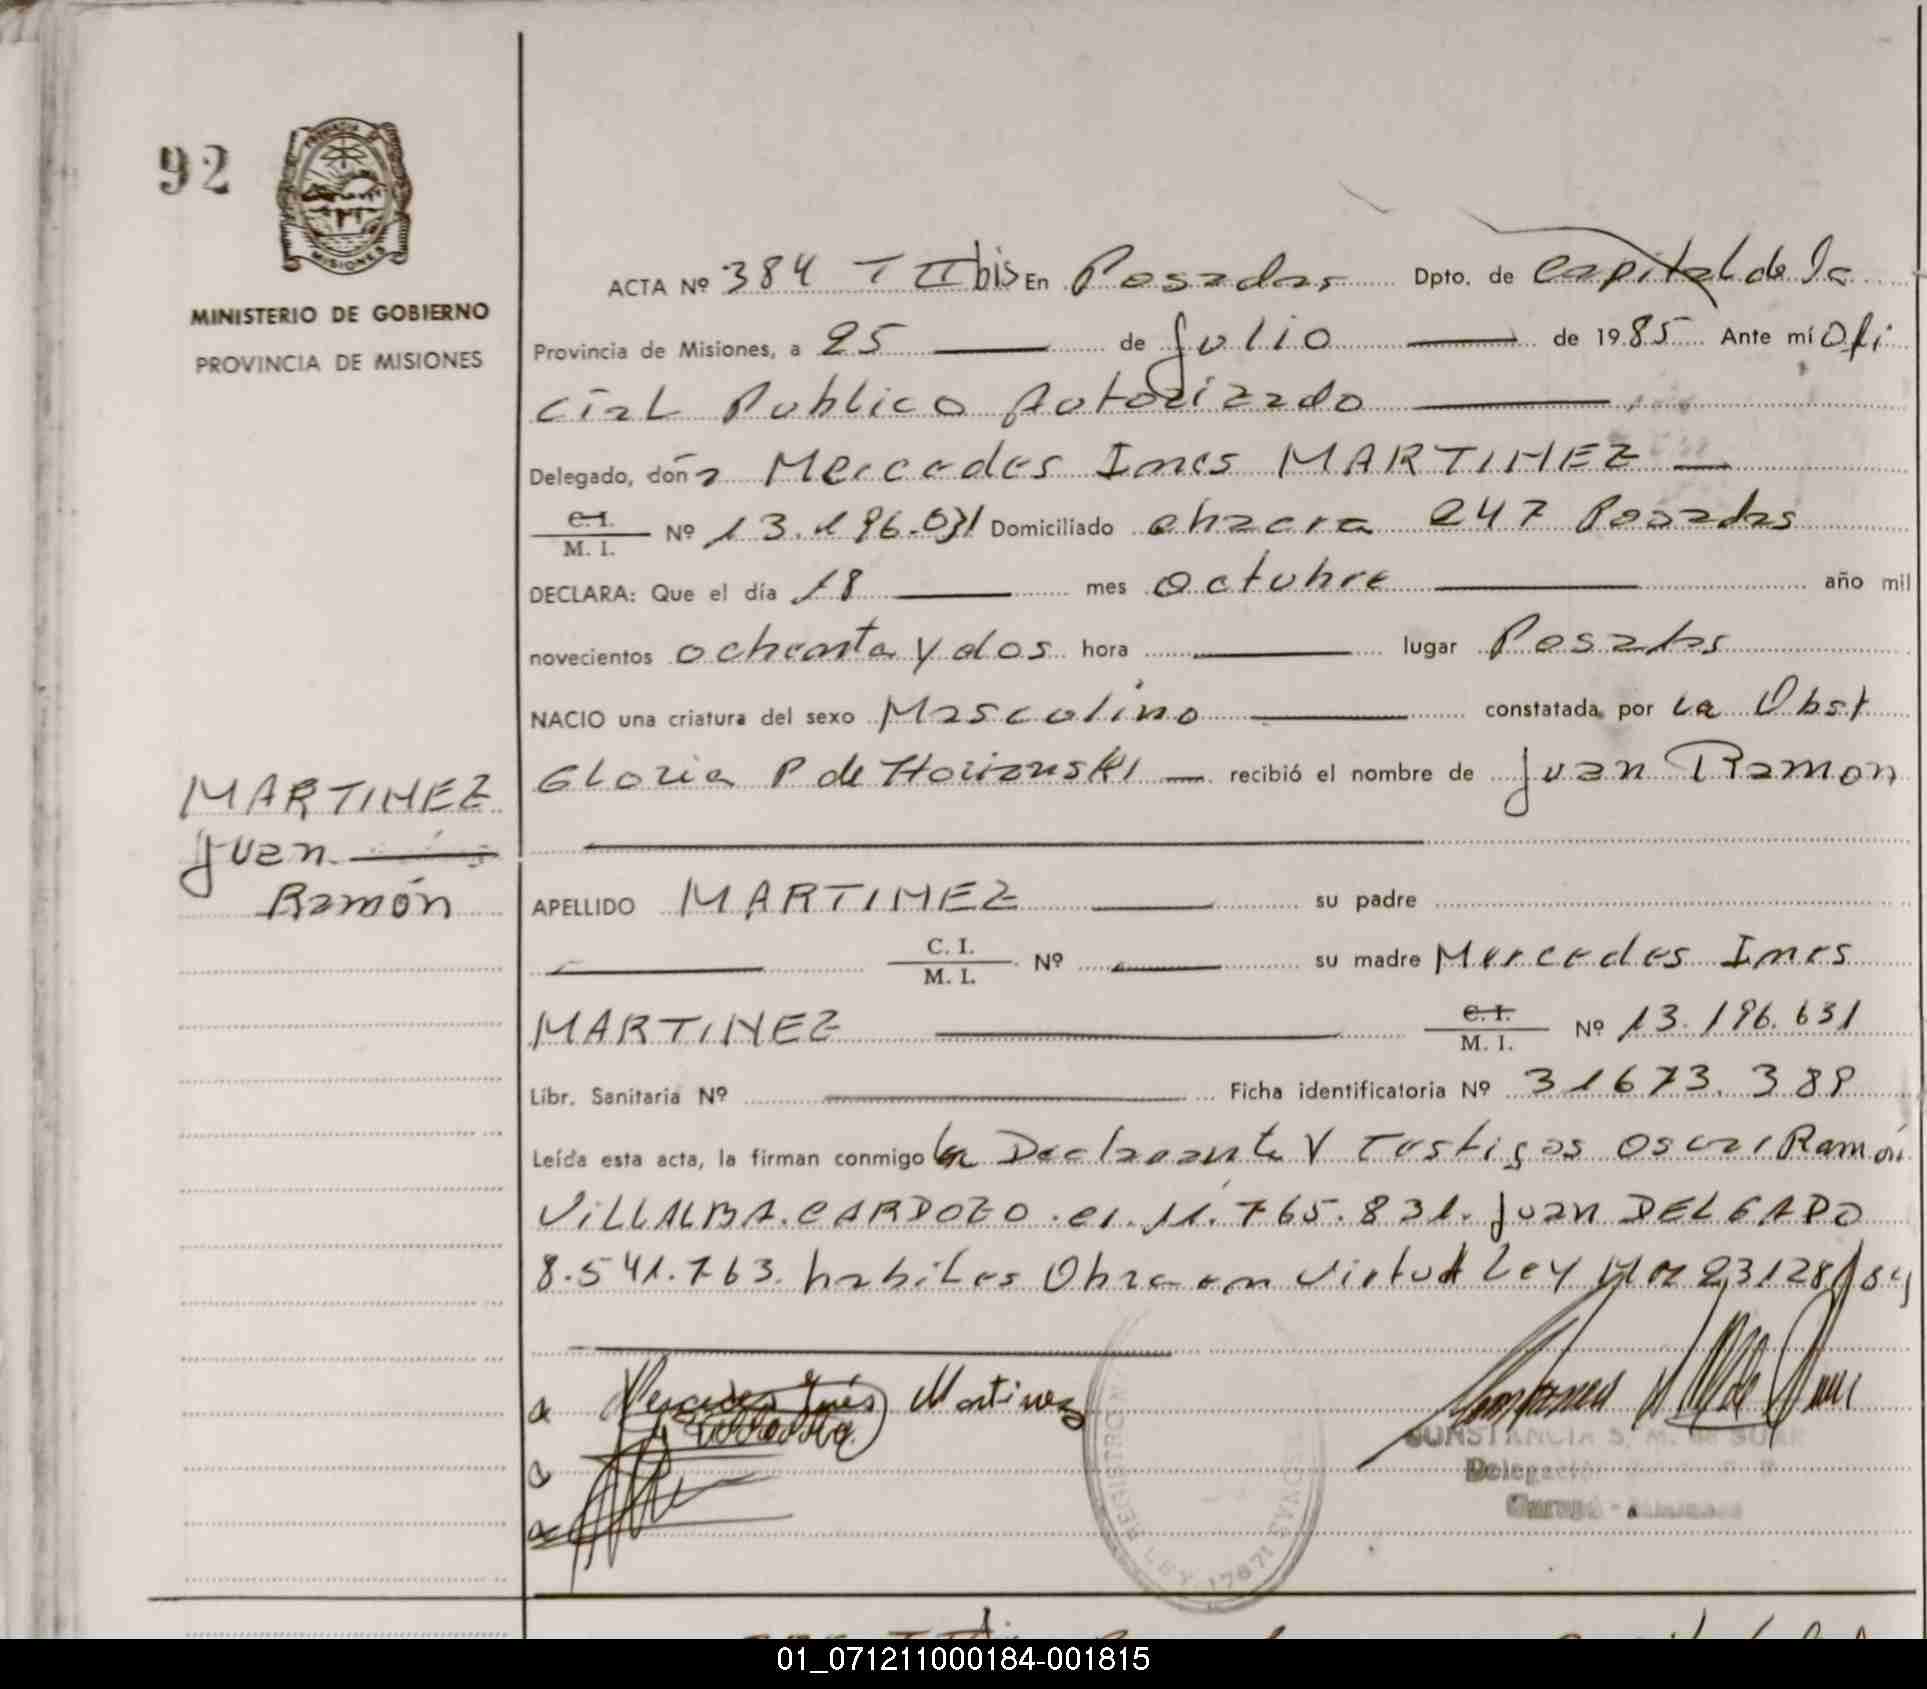 92
MINISTERIO DE GOBIERNO
PROVINCIA DE MISIONES
MARTINEZ
Juan
Ramón
ACTA Nº 384 T II bis En Posadas Dpto. de Capital de la
Provincia de Misiones, a 25 de Julio de 1985 Ante mí Ofi
cial Publico Autorizado
Delegado, doña Mercedes Ines MARTINEZ
C. I. / M. I. Nº 13.196.031 Domiciliado chacra 247 Posadas
DECLARA: Que el día 18 mes octubre año mil
novecientos ochenta y dos hora lugar Posadas
NACIO una criatura del sexo Masculino constatada por la Obst
Gloria P de recibió el nombre de Juan Ramon
APELLIDO MARTINEZ su padre
C. I. / M. I. Nº su madre Mercedes Ines
MARTINEZ C. I. / M. I. Nº 13.196.631
Libr. Sanitaria Nº Ficha identificatoria Nº 31673.389
Leída esta acta, la firman conmigo la Declarante y Testigos Oscar Ramón
VILLALBA CARDOZO ci 11.765.831. Juan DELGADO
8.541.763. habiles Obra en virtud Ley Nº 23128/84
Mercedes Inés Martinez
CONSTANCIA S. M. de
REGISTRO
LEY 17671
01_071211000184-001815